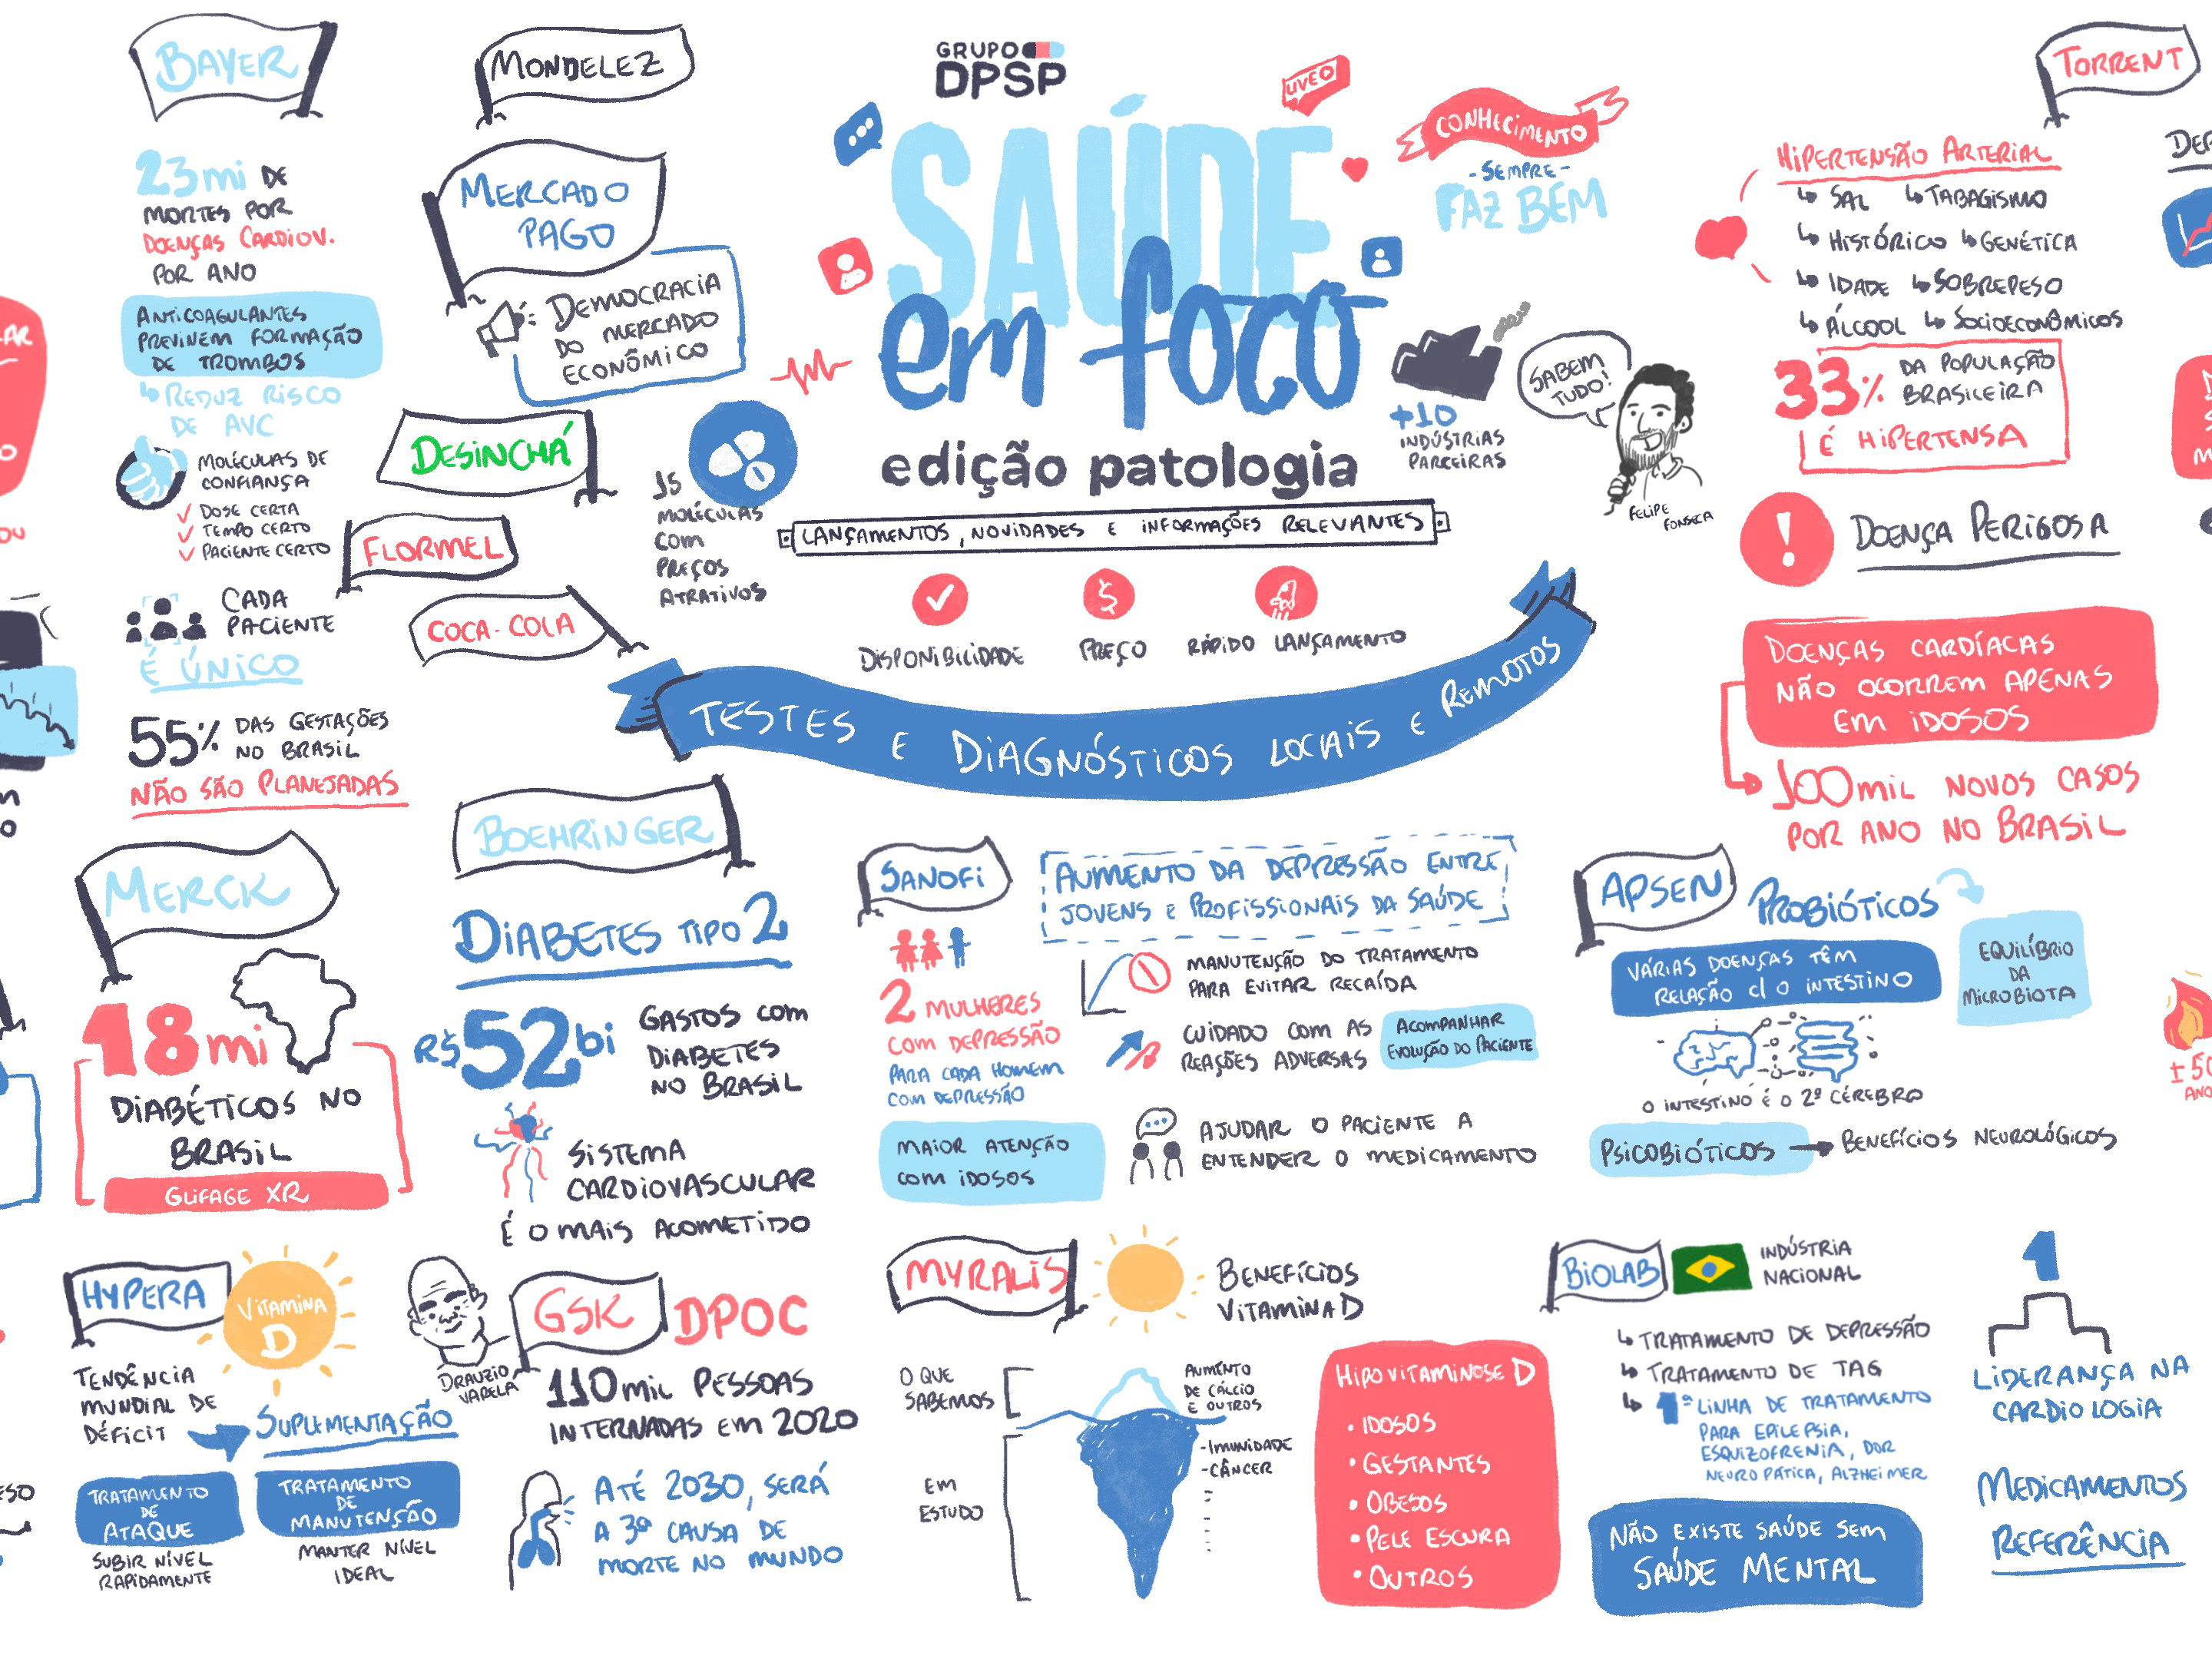 BAYER
23mi DE
MORTES POR
DOENÇAS CARDIOV.
POR ANO
ANTICOAGULANTES
PREVINEM FORMAÇÃO
DE TROMBOS
REDUZ RISCO
DE AVC
MOLÉCULAS DE
CONFIANÇA
DOSE CERTA
TEMPO CERTO
PACIENTE CERTO
CADA
PACIENTE
É ÚNICO
55% DAS GESTAÇÕES
NO BRASIL
NÃO SÃO PLANEJADAS
MONDELEZ
MERCADO
PAGO
DEMOCRACIA
DO MERCADO
ECONÔMICO
DESINCHÁ
FLORMEL
COCA-COLA
15
MOLÉCULAS
COM
PREÇOS
ATRATIVOS
GRUPO
DPSP
SAÚDE
em foco
edição patologia
LANÇAMENTOS, NOVIDADES E INFORMAÇÕES RELEVANTES
DISPONIBILIDADE
PREÇO
RÁPIDO LANÇAMENTO
TESTES E DIAGNÓSTICOS LOCAIS E REMOTOS
UVEO
CONHECIMENTO
-SEMPRE-
FAZ BEM
+10
INDÚSTRIAS
PARCEIRAS
SABEM
TUDO!
FELIPE
FONSECA
TORRENT
HIPERTENSÃO ARTERIAL
SAL TABAGISMO
HISTÓRICO GENÉTICA
IDADE SOBREPESO
ÁLCOOL SOCIOECONÔMICOS
33% DA POPULAÇÃO
BRASILEIRA
É HIPERTENSA
! DOENÇA PERIGOSA
DOENÇAS CARDÍACAS
NÃO OCORREM APENAS
EM IDOSOS
100mil NOVOS CASOS
POR ANO NO BRASIL
MERCK
18mi
DIABÉTICOS NO
BRASIL
GLIFAGE XR
BOEHRINGER
DIABETES TIPO 2
R$52bi GASTOS COM
DIABETES
NO BRASIL
SISTEMA
CARDIOVASCULAR
É O MAIS ACOMETIDO
SANOFI
AUMENTO DA DEPRESSÃO ENTRE
JOVENS E PROFISSIONAIS DA SAÚDE
2 MULHERES
COM DEPRESSÃO
PARA CADA HOMEM
COM DEPRESSÃO
MAIOR ATENÇÃO
COM IDOSOS
MANUTENÇÃO DO TRATAMENTO
PARA EVITAR RECAÍDA
CUIDADO COM AS
REAÇÕES ADVERSAS
ACOMPANHAR
EVOLUÇÃO DO PACIENTE
AJUDAR O PACIENTE A
ENTENDER O MEDICAMENTO
APSEN
PROBIÓTICOS
VÁRIAS DOENÇAS TÊM
RELAÇÃO C/ O INTESTINO
EQUILÍBRIO
DA
MICROBIOTA
O INTESTINO É O 2º CÉREBRO
PSICOBIÓTICOS BENEFÍCIOS NEUROLÓGICOS
± 50
HYPERA
VITAMINA
D
TENDÊNCIA
MUNDIAL DE
DÉFICIT
SUPLEMENTAÇÃO
TRATAMENTO
DE
ATAQUE
SUBIR NÍVEL
RAPIDAMENTE
TRATAMENTO
DE
MANUTENÇÃO
MANTER NÍVEL
IDEAL
DRAUZIO
VARELA
GSK
DPOC
110mil PESSOAS
INTERNADAS EM 2020
ATÉ 2030, SERÁ
A 3ª CAUSA DE
MORTE NO MUNDO
MYRALIS
BENEFÍCIOS
VITAMINA D
O QUE
SABEMOS
AUMENTO
DE CÁLCIO
E OUTROS
EM
ESTUDO
-IMUNIDADE
-CÂNCER
HIPOVITAMINOSE D
• IDOSOS
• GESTANTES
• OBESOS
• PELE ESCURA
• OUTROS
BIOLAB
INDÚSTRIA
NACIONAL
TRATAMENTO DE DEPRESSÃO
TRATAMENTO DE TAG
1ª LINHA DE TRATAMENTO
PARA EPILEPSIA,
ESQUIZOFRENIA, DOR
NEUROPÁTICA, ALZHEIMER
NÃO EXISTE SAÚDE SEM
SAÚDE MENTAL
1
LIDERANÇA NA
CARDIOLOGIA
MEDICAMENTOS
REFERÊNCIA